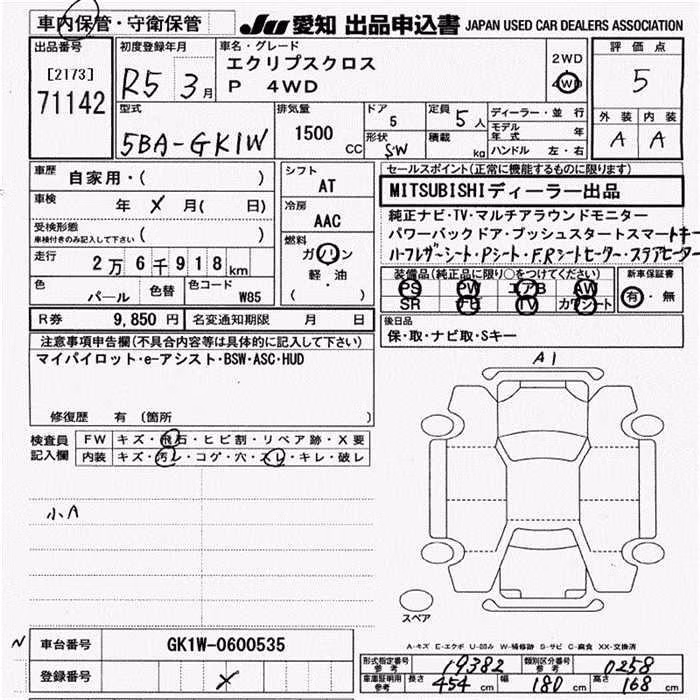 車内保管・守衛保管
JU 愛知 出品申込書 JAPAN USED CAR DEALERS ASSOCIATION
出品番号
[2173]
71142
初度登録年月
R5 3月
車名・グレード
エクリプスクロス
P 4WD
2WD
4WD
評価点
5
外装 内装
A A
型式
5BA-GK1W
排気量
1500 CC
ドア
5
形状
SW
定員
5人
積載
kg
ディーラー・並行
モデル年式 年
ハンドル 左・右
車歴
自家用・( )
車検
年 X 月( 日)
受検形態
車検付きのみ記入して下さい ( )
走行
2万6千918km
色
パール
色替
色コード
W85
シフト
AT
冷房
AAC
燃料
ガソリン
軽・油
( )
セールスポイント(正常に機能するものに限ります)
MITSUBISHIディーラー出品
純正ナビ・TV・マルチアラウンドモニター
パワーバックドア・プッシュスタートスマートキー
ハーフレザーシート・Pシート・F.Rシートヒーター・ステアヒーター
装備品(純正品に限り○をつけてください)
PS PW エアB AW
SR FB TV カワシート
新車保証書
有・無
R券 9,850円
名変通知期限 月 日
後日品
保・取・ナビ取・Sキー
注意事項申告欄(不具合内容等は具体的に記入して下さい)
マイパイロット・e-アシスト・BSW・ASC・HUD
修復歴 有 (箇所 )
検査員
記入欄
FW キズ・飛石・ヒビ割・リペア跡・X要
内装 キズ・汚レ・コゲ・穴・スレ・キレ・破レ
小A
A1
スペア
A-キズ E-エクボ U-凹み W-補修跡 S-サビ C-腐食 XX-交換済
N
車台番号 GK1W-0600535
登録番号 X
形式指定番号 参考 19382
類別区分番号 参考 0258
車庫証明用 参考 長さ 454 cm 幅 180 cm 高さ 168 cm